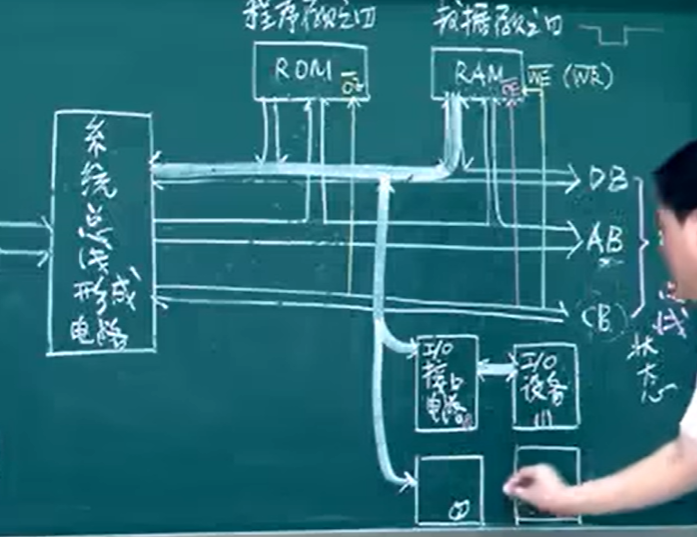 程序存储空间
数据存储空间
ROM
OE
RAM
OE
WE (WR)
系统总线形成电路
DB
AB
CB
总线
状态
I/O
接口
电路
(1)
I/O
设备
(1)
②